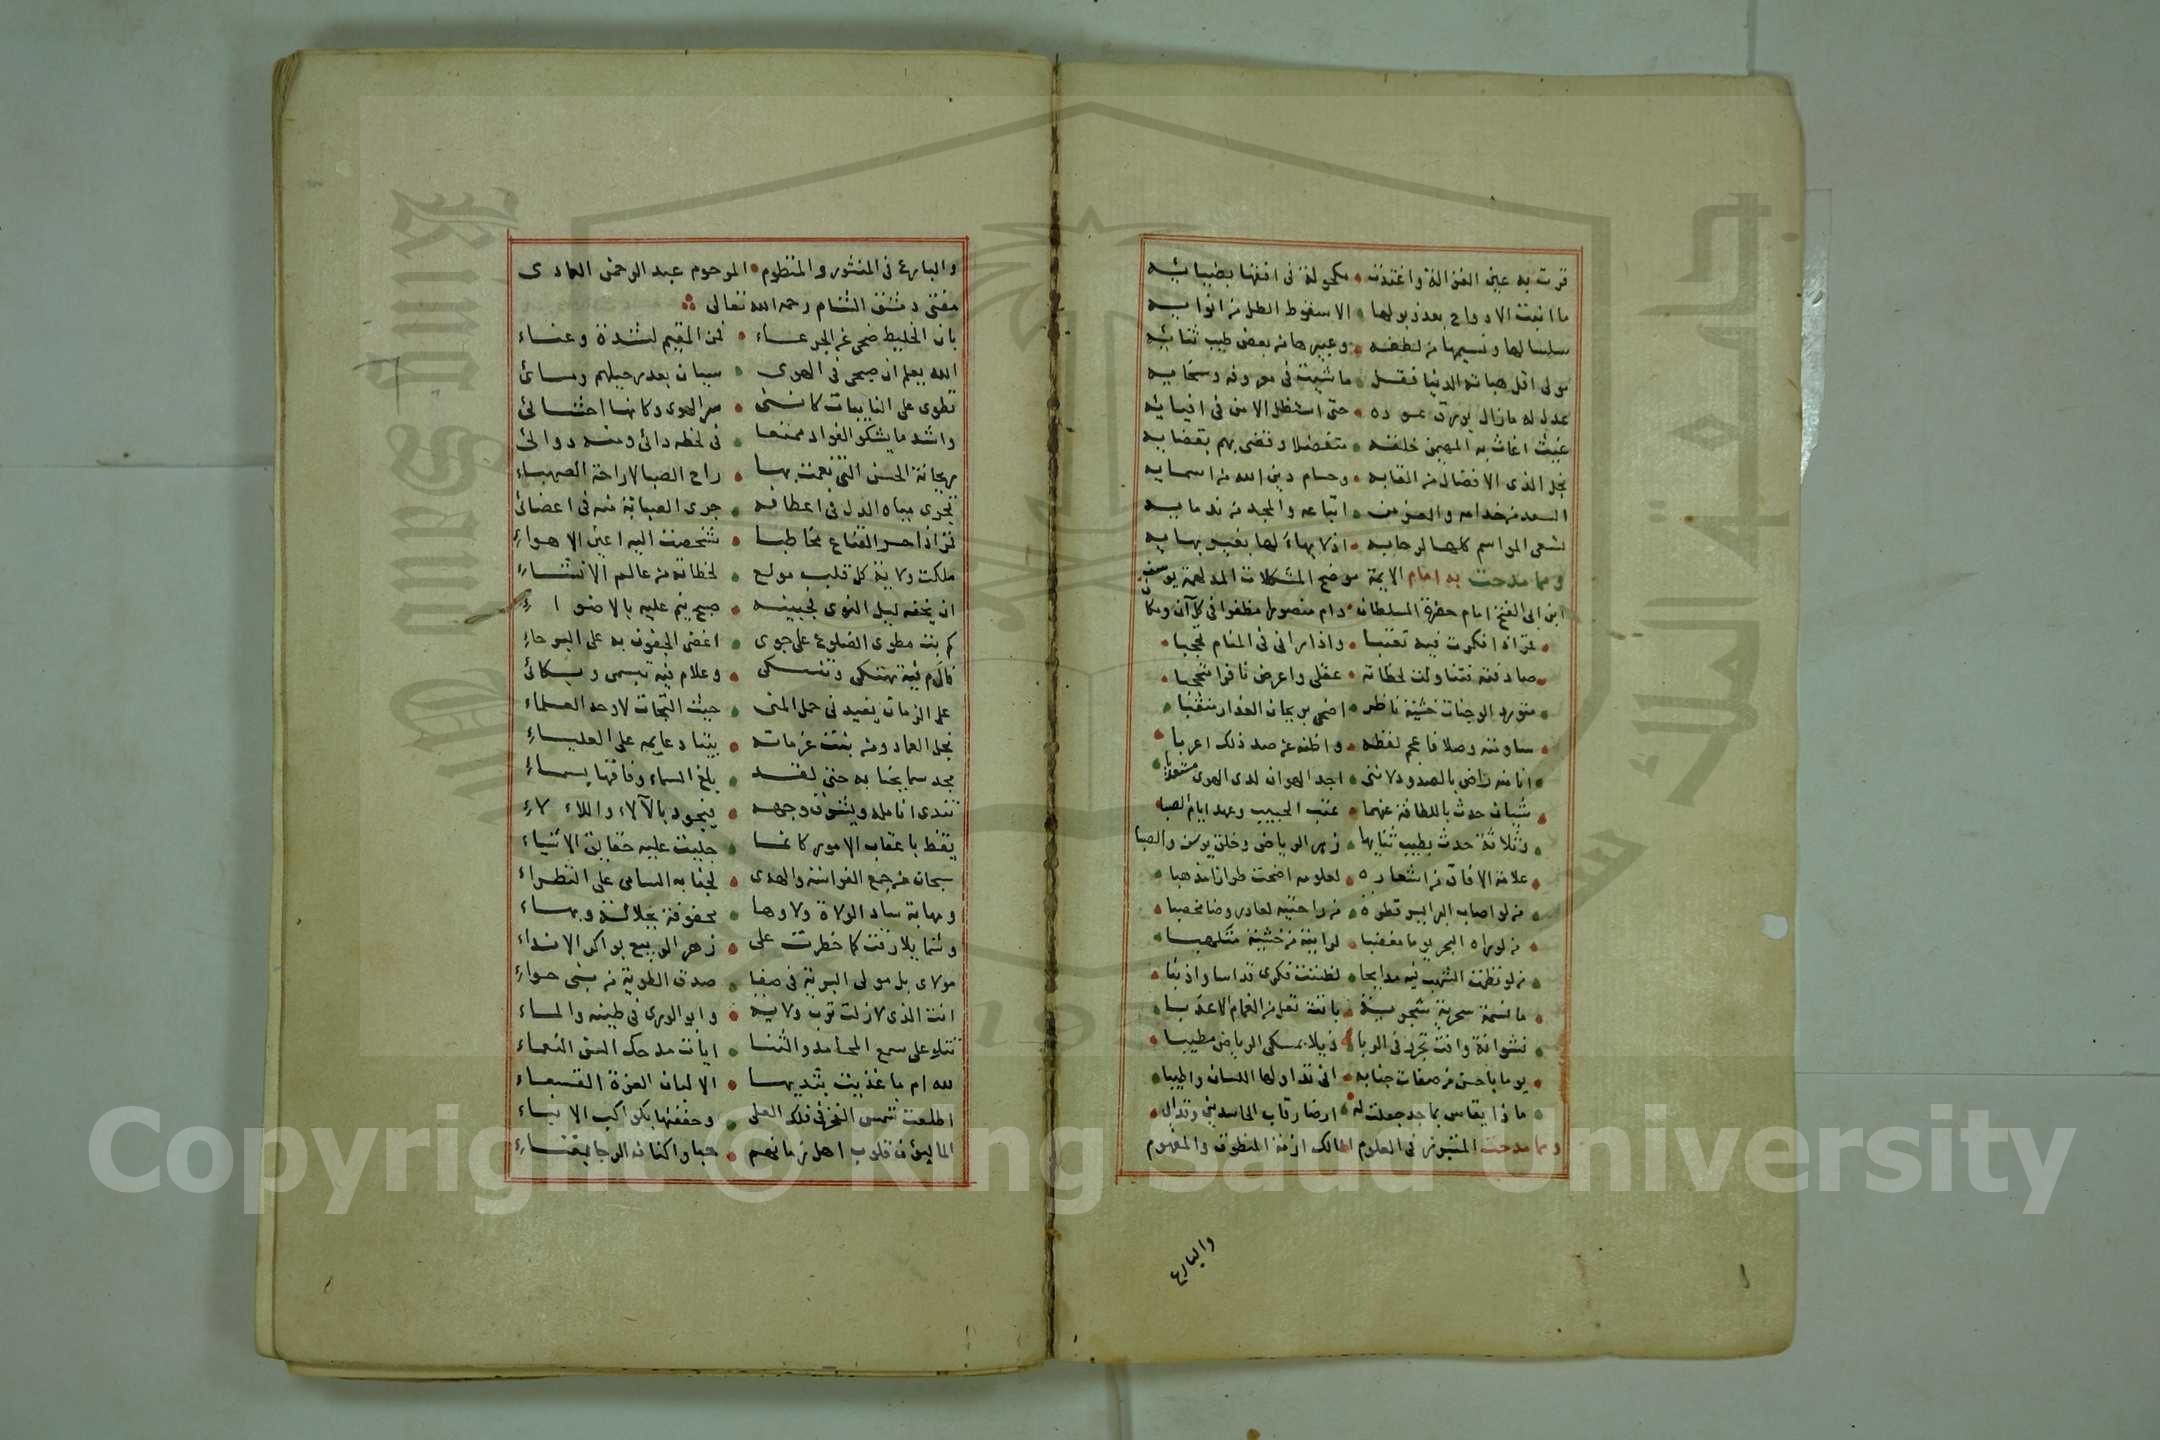 قرت به عين الغزالة واغتدت • مكحولة في افقها بضيائه
ما انبت الارواح بعد ذبولها • الا سقوط الطل من انوائه
سلسالها ونسيمها من لطفه • وعبيرها من بعض طيب ثنائه
مولى اقل هباته الدنيا فقل • ما شيت في معروفه وسخايه
عدل له مازال يورق عوده • حتى استظل الامن في افيائه
غيث اغاث به المهيمن خلقه • متفضلا وقضى بهم بقضايه
نجل الذى الافضال من القابه • وحسام دين الله من اسمايه
السعد من خدامه والعز من • اتباعه والمجد من ندمايه
تسعى المواسم كلها لرحابه • اذ لا بهاء لها بغير بهايه
ومما مدحت به امام الايمة موضح المشكلات المدلهمة يوسف
ابن ابى الفتح امام حضرة السلطان • دام منصورا مظفرا في كل آن ومكان
• يغتر اذا فكرت فيه تعتبا • واذا رانى في المنام تحجبا •
• صادفته فتناولت لحظاته • عقلى واعرض نافرا متحجبا •
• متورد الوجنات خشية ناظر • اضحى بريحان العذار منقبا •
• ساومته وصلا فاعجم لفظه • واظنه عن صد ذلك اعربا •
• انا منه راض بالصدود لاننى • اجد الهوان لدى الهوى مستعذبا •
• شيان حدث باللطافة عنهما • عتب الحبيب وعهد ايام الصبا
• وثلاثة حدث بطيب ثنايها • زهر الرياض وخلق يوسف والصبا
• علامة الافاق من اشعاره • لعلومه اضحت طرازا مذهبا •
• من لو اصاب البرايسر قطرة • من راحتيه لعاد روضا مخصبا •
• من لو راه البحر يوما مغضبا • لرايته من خشية متلهبا •
• من لو نظمت الشهب فيه مدايحا • لظننت فكرى قد اسا واذنبا •
• ما نسمة سحرية شجرية • باتت تعل من الغمام الاعذبا •
• نشوانة وافت تجر في الربا • ذيلا بمسكى الرياض مطيبا •
• يوما باحسن من صفات جنابه • انى تداولها اللسان واطيبا •
• ماذا يقاس بماجد جعلت له • ارضا رقاب الحاسدين وتد
ومما مدحت المتبوء في العلوم المالك ازمة المنطوق والمفهوم
والبارع
والبارع في المنثور والمنظوم • المرحوم عبد الرحمن العمادى
مفتى دمشق الشام رحمه الله تعالى
بان الخليط ضحى عن الجرعاء • فمن المقيم لشدة وعناء
الله يعلم ان صبحى في الهوى • سيان بعد رحيلهم ومسائى
تطوى على النايبات كاننى • سر الهوى وكانها احشائى
واشد ما يشكو الفواد ممنعا • في لحظه دائى ومنه دوائى
ريحانة الحسن التى نعمت بها • راح الصبا لا راحة الصهباء
تجرى مياه الدل في اعطافه • جرى الصبابة منه في اعضائى
قمر اذا حسر القناع مخاطبا • شخصت اليه اعين الاهواء
ملكت ولاية كل قلب مولع • لحظاته من عالم الانشاء
ان يخفه ليل النوى فجبينه • صبح ينم عليه بالاضواء
كم بت مطوى الضلوع على جوى • اغضى الجفون به على البرحاء
فالام فيه تهتكى وتنسكى • وعلام فيه تبسمى وبكائى
علم الزمان يفيد في حمل المنى • حيث التجات لاوحد العلماء
نجل العماد ومن بنت عزماته • بيتا دعايمه على العلياء
مجد سما بجنابه حتى لقد • بلغ السماء وفاقها بسماء
تندى انامله ويشرق وجهه • فيجود بالآلاء واللالاء
يقظ باعقاب الامور كانما • جليت عليه حقايق الاشياء
سبحان من جمع الفراسة والهدى • لجنابه السامى على النظراء
ومهابة ساد الولاة ولاوها • محفوفة بجلالة وبهاء
وشمايلا رقت كما خطرت على • زهر الربيع بواكر الانداء
مولاى بل مولى البرية في صفا • صدق الطوية من بنى حواء
انت الذى لازلت ثوب ولايه • وابو الورى في طينه والماء
تتلو على سمع المحامد والثنا • ايات مدحك السن النعماء
لله ام ما غذيت بثديها • الا لبان العزة القعساء
اطلعت شمس الفخر في فلك العلى • وحففتها بكواكب الابناء
الماليون قلوب اهل زمانهم • حبا واكناف الرجا